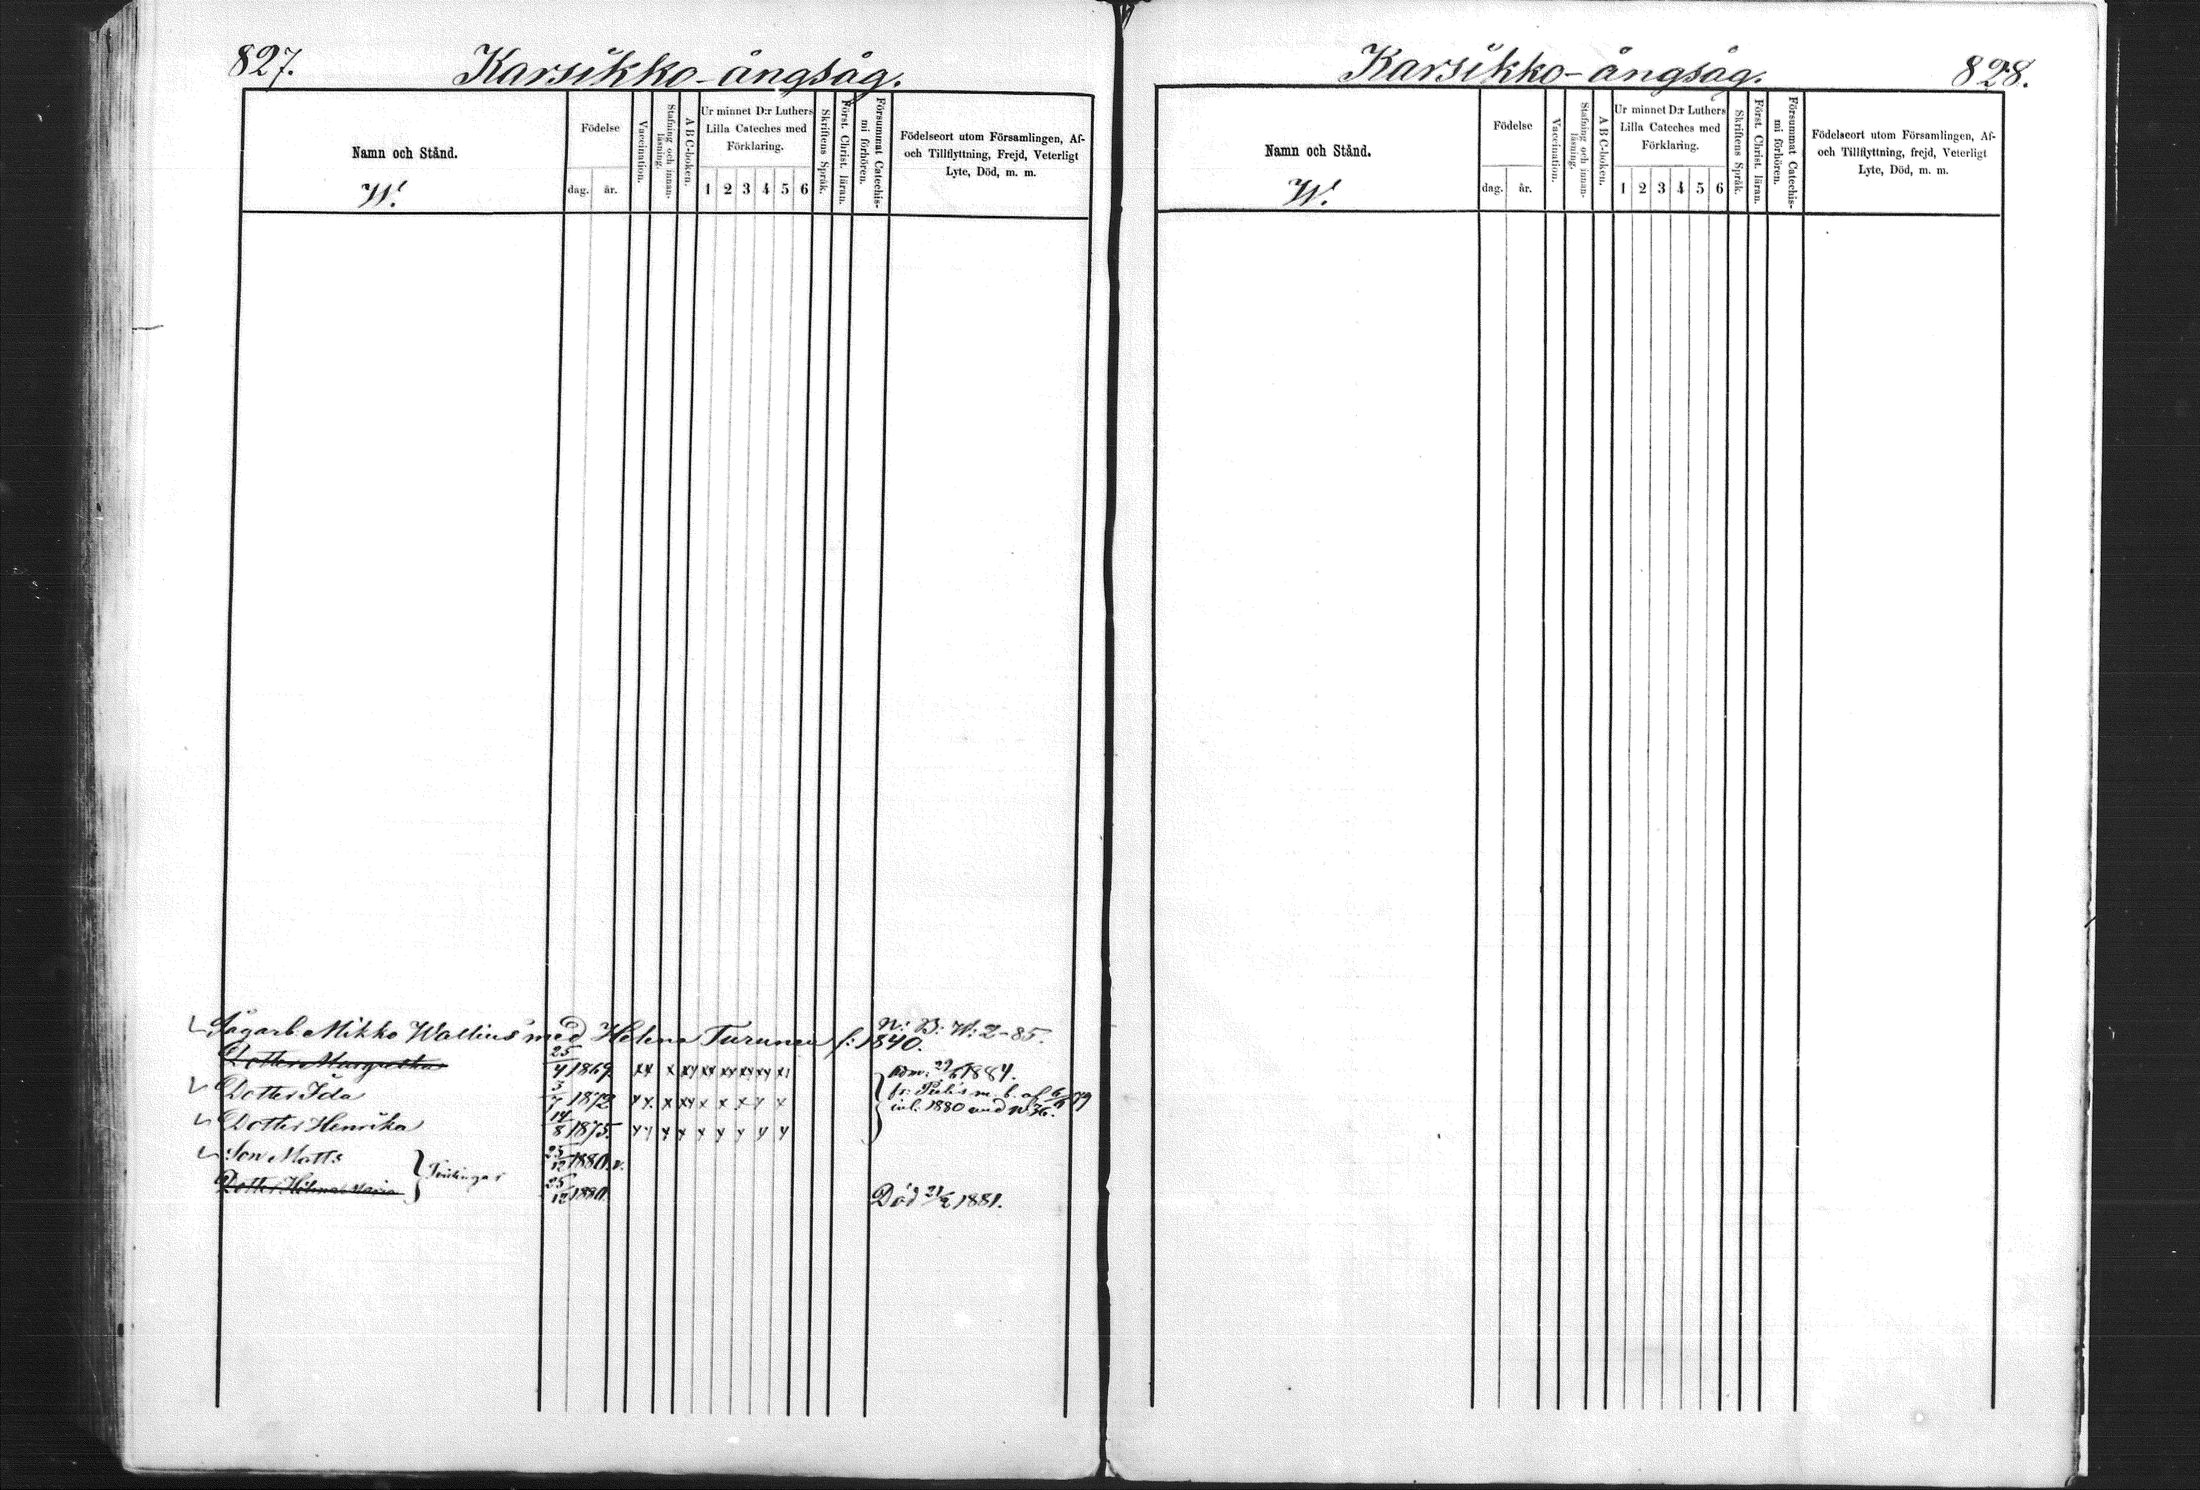 827. Karsikko-ångsåg.
Namn och Stånd.
W.
Födelse
dag. år.
Vaccination.
Stafning och innan-
läsning.
A B C-boken.
Ur minnet D:r Luthers
Lilla Cateches med
Förklaring.
1 2 3 4 5 6
Skriftens Språk.
Först. Christ. läran.
Försummat Catechis-
mi förhören.
Födelseort utom Församlingen, Af-
och Tillflyttning, Frejd, Veterligt
Lyte, Död, m. m.
Sågarb. Mikko Wallius med Helena Turunen f: 1840. N: B: W: 2-85.
Dotter Margretha 25/4 1869 xx x xx xx xx xx xx x adm: 1884.
Dotter Ida 3/7 1872 xx x xx x x x x x fr: m. b. af 79
inl. 1880 und N 36.
Dotter Henrika 14/8 1875. xx x x x x x x x
Son Matts 25/12 1880. v.
Tvillingar
Dotter Helena Maria 25/12 1880. Död 21/2 1881.
Karsikko-ångsåg. 828.
Namn och Stånd.
W.
Födelse
dag. år.
Vaccination.
Stafning och innan-
läsning.
A B C-boken.
Ur minnet D:r Luthers
Lilla Cateches med
Förklaring.
1 2 3 4 5 6
Skriftens Språk.
Först. Christ. läran.
Försummat Catechis-
mi förhören.
Födelseort utom Församlingen, Af-
och Tillflyttning, frejd, Veterligt
Lyte, Död, m. m.